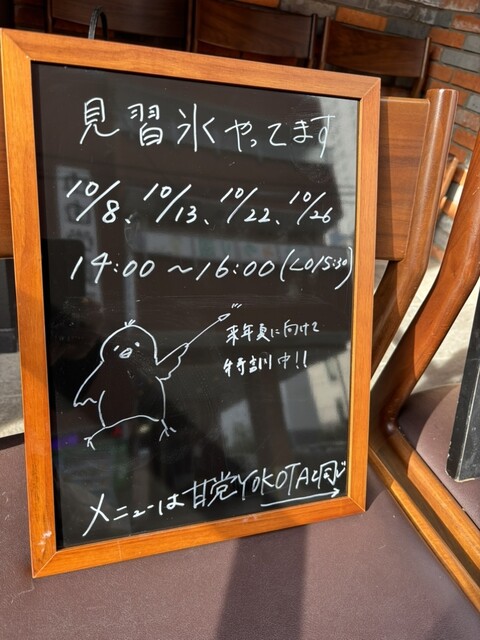 見習氷くやってます
10/8、10/13、10/22、10/26
14:00～16:00(LO15:30)
来年夏に向けて
特訓中!!
メニューは甘党YOKOTAと同じ